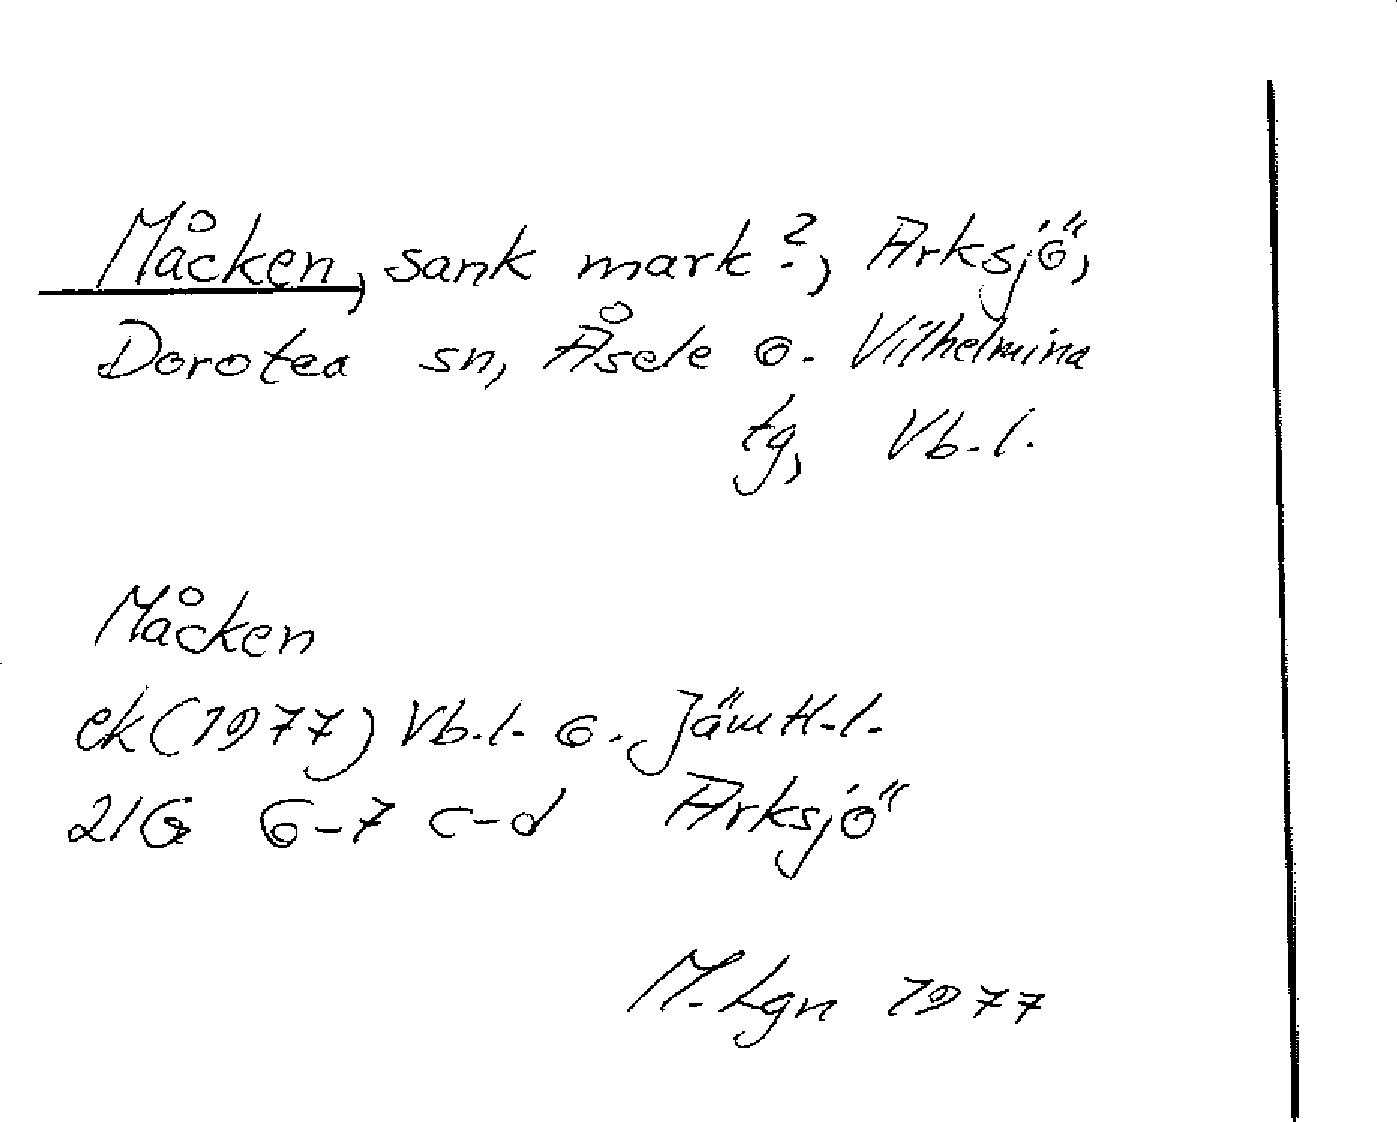 Måcken, sank mark?, Arksjö,
Dorotea sn, Åsele o. Vilhelmina
tg, Vb.l.
Måcken
ek (1977) Vb.l. o. Jämtl.l.
21G 6-7 c-d Arksjö
M. Lgn 1977